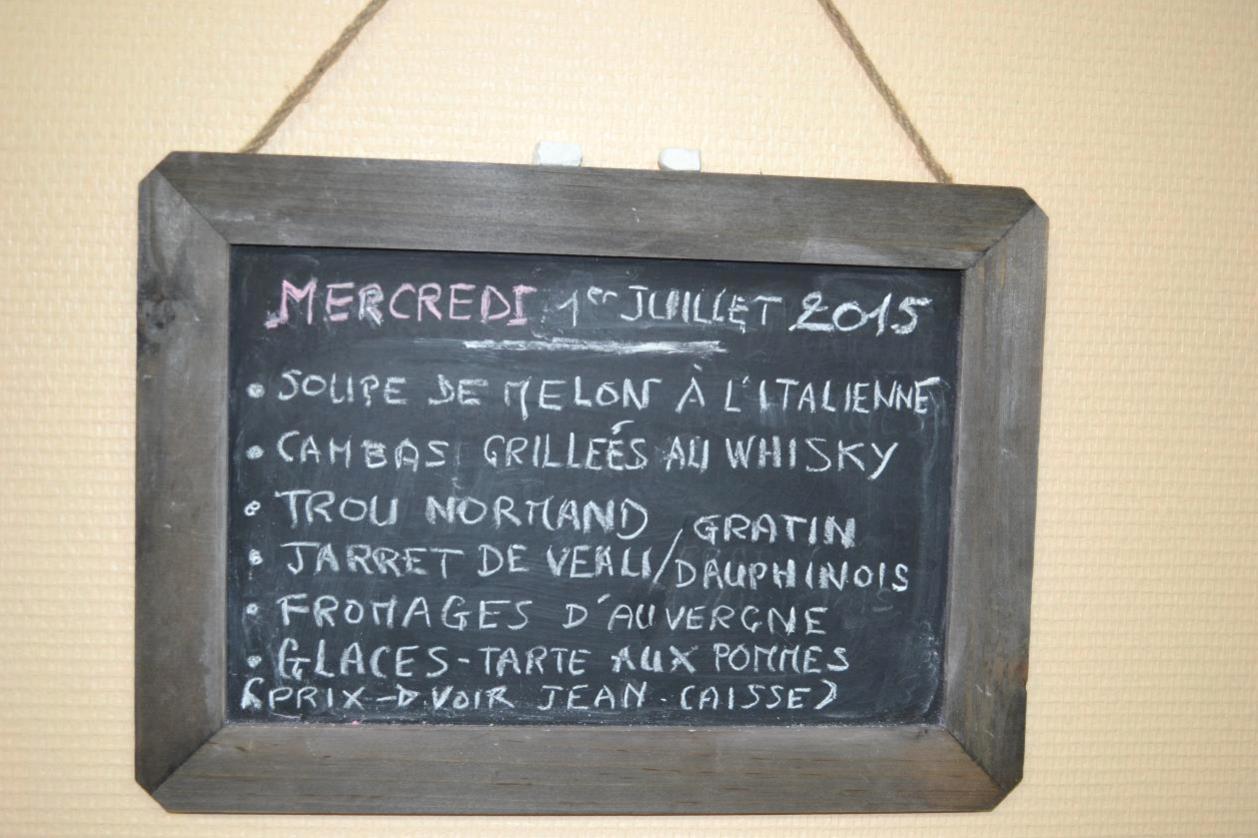 MERCREDI 1er JUILLET 2015
• SOUPE DE MELON À L'ITALIENNE
• CAMBAS GRILLEÉS AU WHISKY
• TROU NORMAND
• JARRET DE VEAU/GRATIN DAUPHINOIS
• FROMAGES D'AUVERGNE
• GLACES-TARTE AUX POMMES
(PRIX→VOIR JEAN-CAISSE)